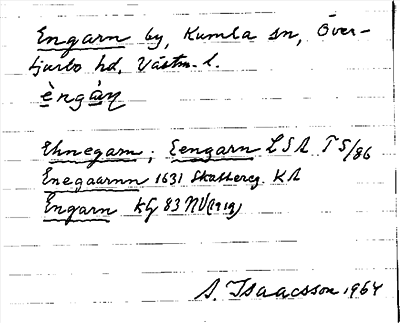 Engarn by, Kumla sn, Över-
tjurbo hd, Västm. l.
èngàṇ
Ehnegarn; Eengarn LSA T5/86
Enegaarnn 1631 Skattereg. KA
Engarn KG 83 NV (1919)
S. Isaacsson 1964